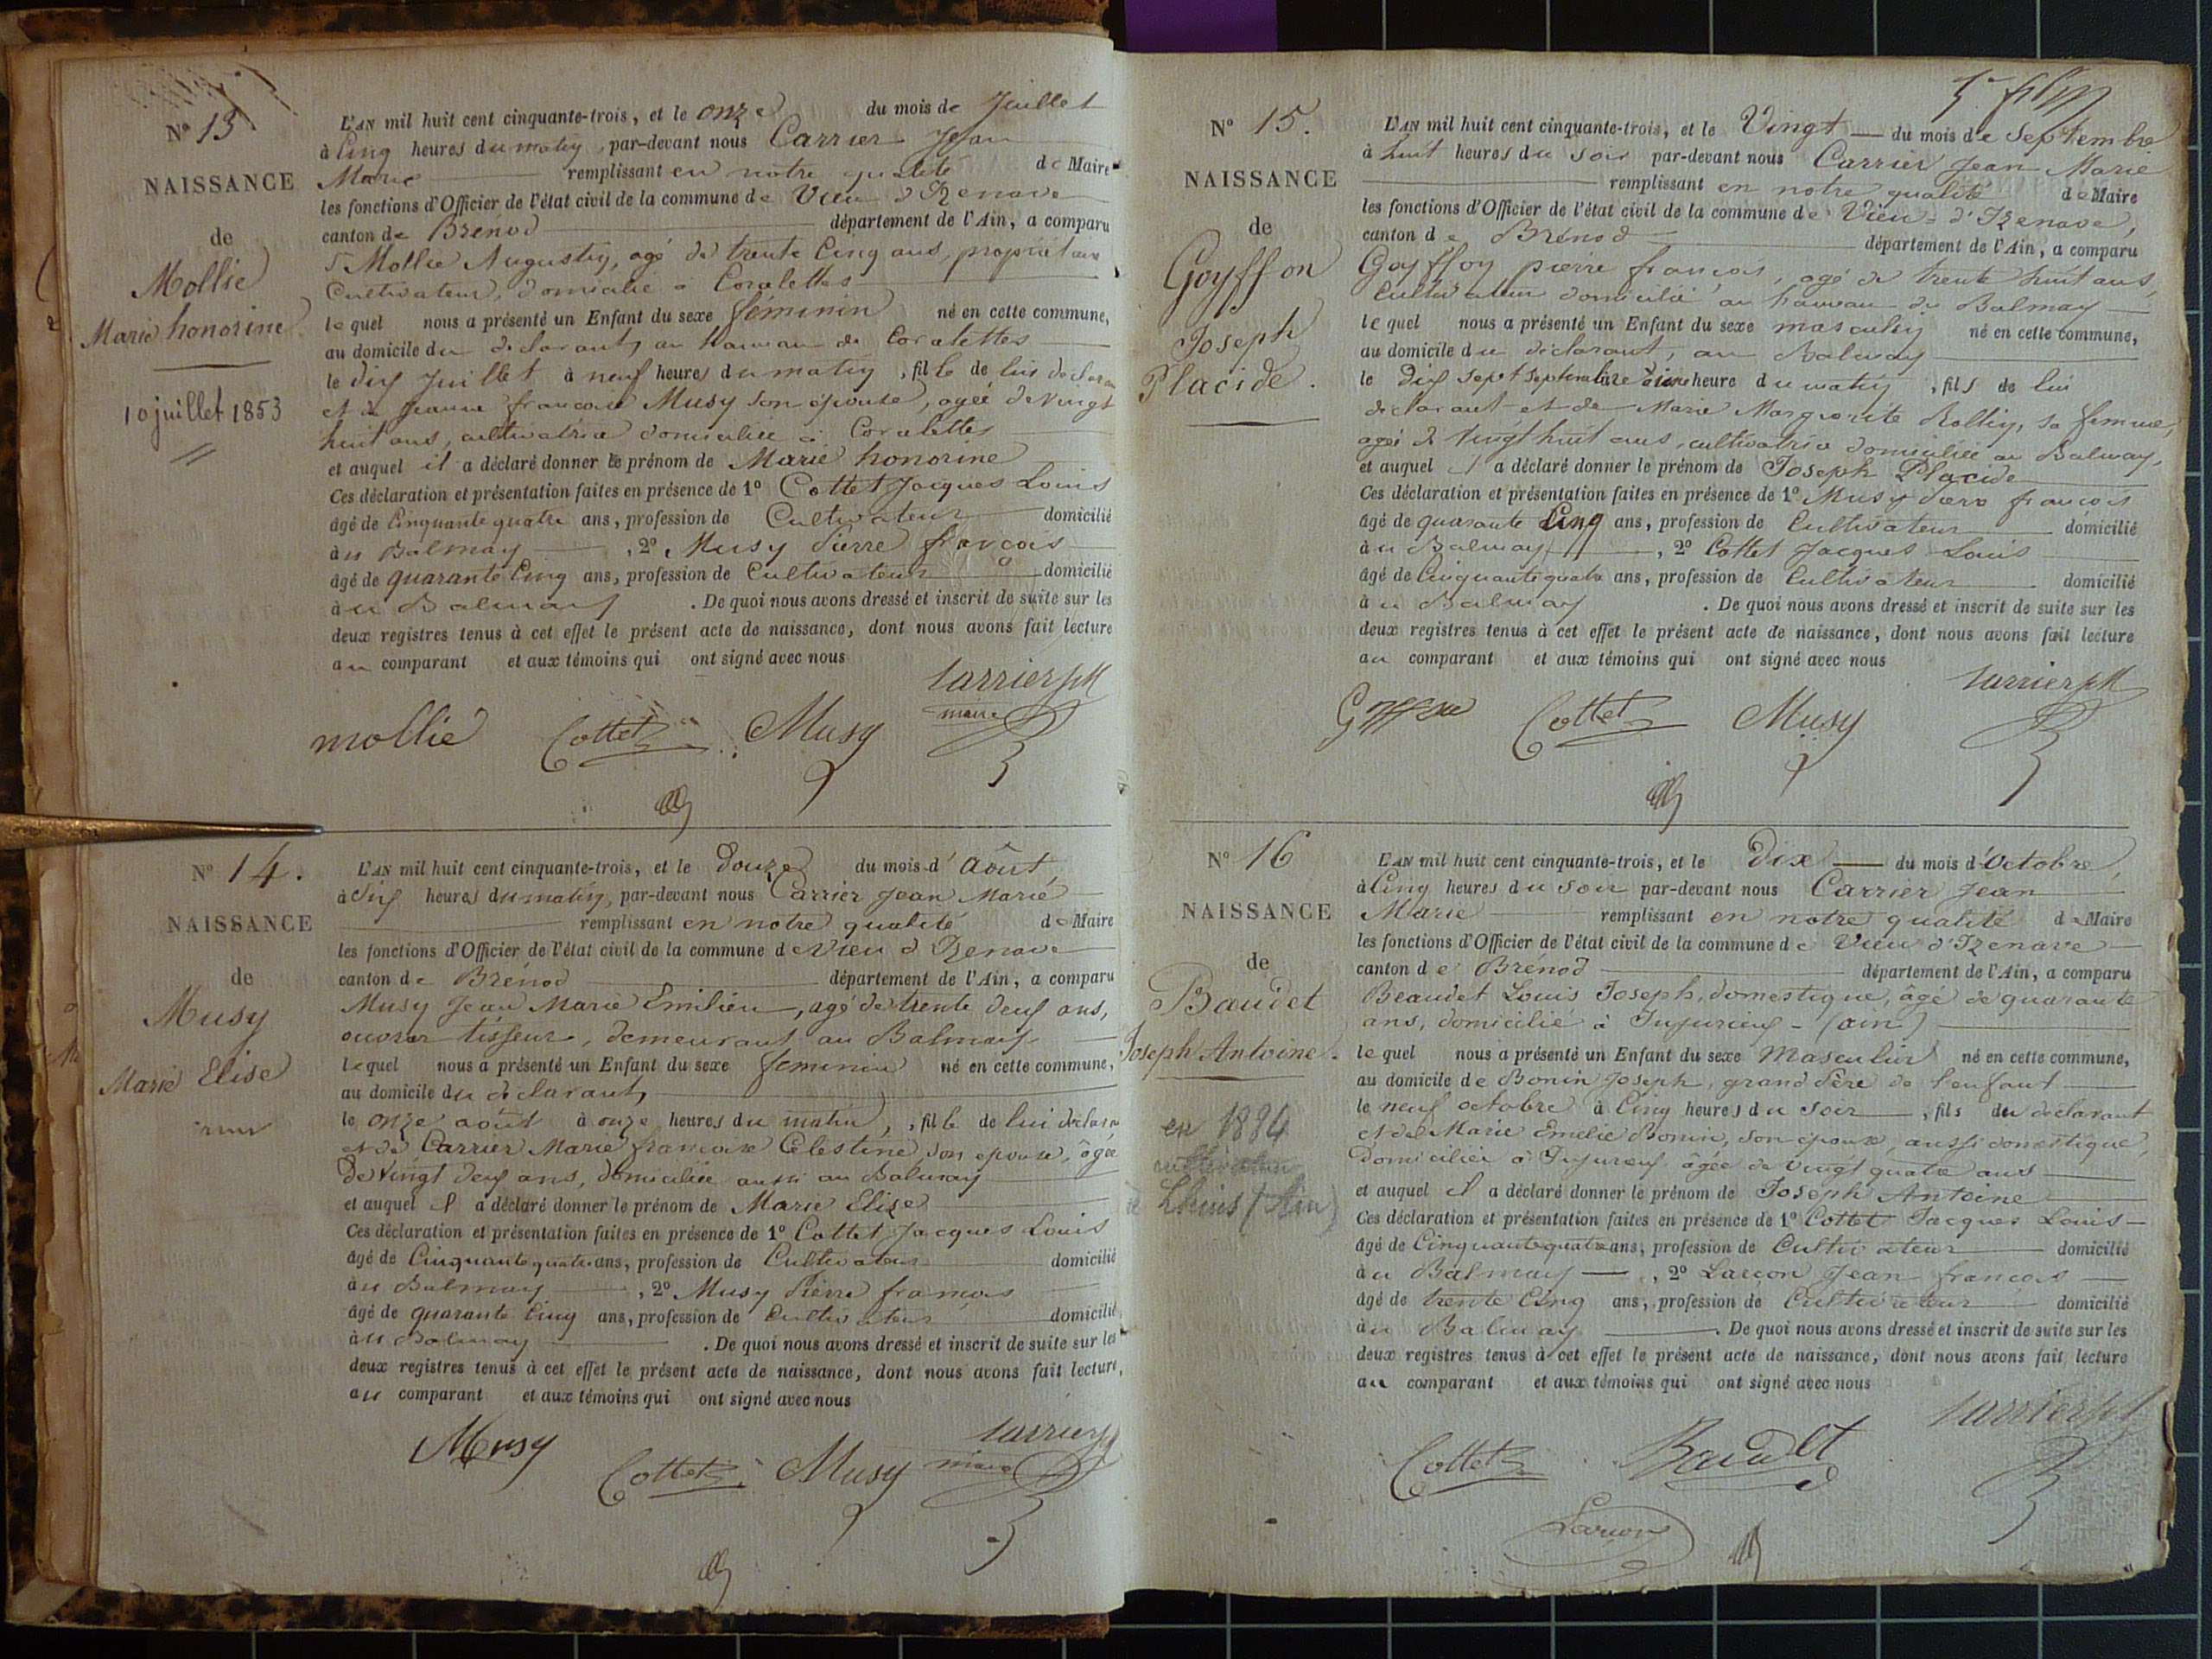 N° 13
NAISSANCE
de
Mollie
Marie honorine
10 juillet 1853
L'AN mil huit cent cinquante-trois, et le onze du mois de Juillet
à Cinq heures du matin, par-devant nous Carrier Jean
Marie remplissant en notre qualité de Maire
les fonctions d'Officier de l'état civil de la commune de Vieu d'Izenave
canton de Brénod département de l'Ain, a comparu
Mollie Augustin, agé de trente Cinq ans, propriétaire
Cultivateur, domicilié à Coralettes
lequel nous a présenté un Enfant du sexe féminin né en cette commune,
au domicile du déclarant, au hameau de Coralettes
le dix Juillet à neuf heures du matin, fille de lui
et de Jeanne francoise Musy son épouse, agée de vingt
huit ans, cultivatrice domiciliée à Coralettes
et auquel il a déclaré donner le prénom de Marie honorine
Ces déclaration et présentation faites en présence de 1° Cottet Jacques Louis
âgé de Cinquante quatre ans, profession de Cultivateur domicilié
àu Balmay, 2° Musy Pierre françois
âgé de quarante Cinq ans, profession de Cultivateur domicilié
àu Balmay. De quoi nous avons dressé et inscrit de suite sur les
deux registres tenus à cet effet le présent acte de naissance, dont nous avons fait lecture
au comparant et aux témoins qui ont signé avec nous
Carrier JM
maire
mollie Cottet Musy
N° 14.
NAISSANCE
de
Musy
Marie Elise
L'AN mil huit cent cinquante-trois, et le Douze du mois d'Août,
à Six heures du matin, par-devant nous Carrier Jean Marie
remplissant en notre qualité de Maire
les fonctions d'Officier de l'état civil de la commune de Vieu d'Izenave
canton de Brénod département de l'Ain, a comparu
Musy Jean Marie Emilien, agé de trente deux ans,
ouvrier tisseur, demeurant au Balmay
lequel nous a présenté un Enfant du sexe feminin né en cette commune,
au domicile du déclarant,
le onze août à onze heures du matin, fille de lui
et de Carrier Marie francoise Celestine, son epouse, âgée
de vingt deux ans, domiciliée aussi au Balmay
et auquel il a déclaré donner le prénom de Marie Elise
Ces déclaration et présentation faites en présence de 1° Cottet Jacques Louis
âgé de Cinquante quatre ans, profession de Cultivateur domicilié
àu Balmay, 2° Musy Pierre francois
âgé de quarante Cinq ans, profession de Cultivateur domicilié
àu Balmay. De quoi nous avons dressé et inscrit de suite sur les
deux registres tenus à cet effet le présent acte de naissance, dont nous avons fait lecture,
au comparant et aux témoins qui ont signé avec nous
Carrier
maire
Musy Cottet Musy
N° 15.
NAISSANCE
de
Goyffon
Joseph
Placide.
L'AN mil huit cent cinquante-trois, et le Vingt du mois de Septembre
à huit heures du soir par-devant nous Carrier Jean Marie
remplissant en notre qualité de Maire
les fonctions d'Officier de l'état civil de la commune de Vieu-d'Izenave,
canton de Brénod département de l'Ain, a comparu
Goyffon pierre francois, agé de trente huit ans,
Cultivateur domicilié au hameau du Balmay
lequel nous a présenté un Enfant du sexe masculin né en cette commune,
au domicile du déclarant, au Balmay
le Dix sept Septembre à heure du matin, fils de lui
déclarant et de Marie Marguerite Rollin, sa femme,
agée de vingt huit ans, cultivatrice domiciliée au Balmay,
et auquel il a déclaré donner le prénom de Joseph Placide
Ces déclaration et présentation faites en présence de 1° Musy Pierre francois
âgé de quarante Cinq ans, profession de Cultivateur domicilié
àu Balmay, 2° Cottet Jacques Louis
âgé de Cinquante quatre ans, profession de Cultivateur domicilié
àu Balmay. De quoi nous avons dressé et inscrit de suite sur les
deux registres tenus à cet effet le présent acte de naissance, dont nous avons fait lecture
au comparant et aux témoins qui ont signé avec nous
Carrier JM
Cottet Musy
N° 16
NAISSANCE
de
Baudet
Joseph Antoine.
en 1884
cultivateur
à Lhuis (Ain)
L'AN mil huit cent cinquante-trois, et le Dix du mois d'Octobre,
à Cinq heures du soir par-devant nous Carrier Jean
Marie remplissant en notre qualité de Maire
les fonctions d'Officier de l'état civil de la commune de Vieu d'Izenave
canton de Brénod département de l'Ain, a comparu
Beaudet Louis Joseph, domestique, âgé de quarante
ans, domicilié à Jujurieux - (ain)
lequel nous a présenté un Enfant du sexe Masculin né en cette commune,
au domicile de Bonin Joseph, grand Père de l'enfant
le neuf octobre à Cinq heures du soir, fils du déclarant
et de Marie Emelie Bonin, son épouse, aussi domestique,
domiciliée à Jujureux âgée de vingt quatre ans
et auquel il a déclaré donner le prénom de Joseph Antoine
Ces déclaration et présentation faites en présence de 1° Cottet Jacques Louis
âgé de Cinquante quatre ans, profession de Cultivateur domicilié
àu Balmay, 2° Larçon Jean francois
âgé de trente Cinq ans, profession de Cultivateur domicilié
àu Balmay. De quoi nous avons dressé et inscrit de suite sur les
deux registres tenus à cet effet le présent acte de naissance, dont nous avons fait lecture
au comparant et aux témoins qui ont signé avec nous
Carrier JM
Cottet Baudet
Larcon